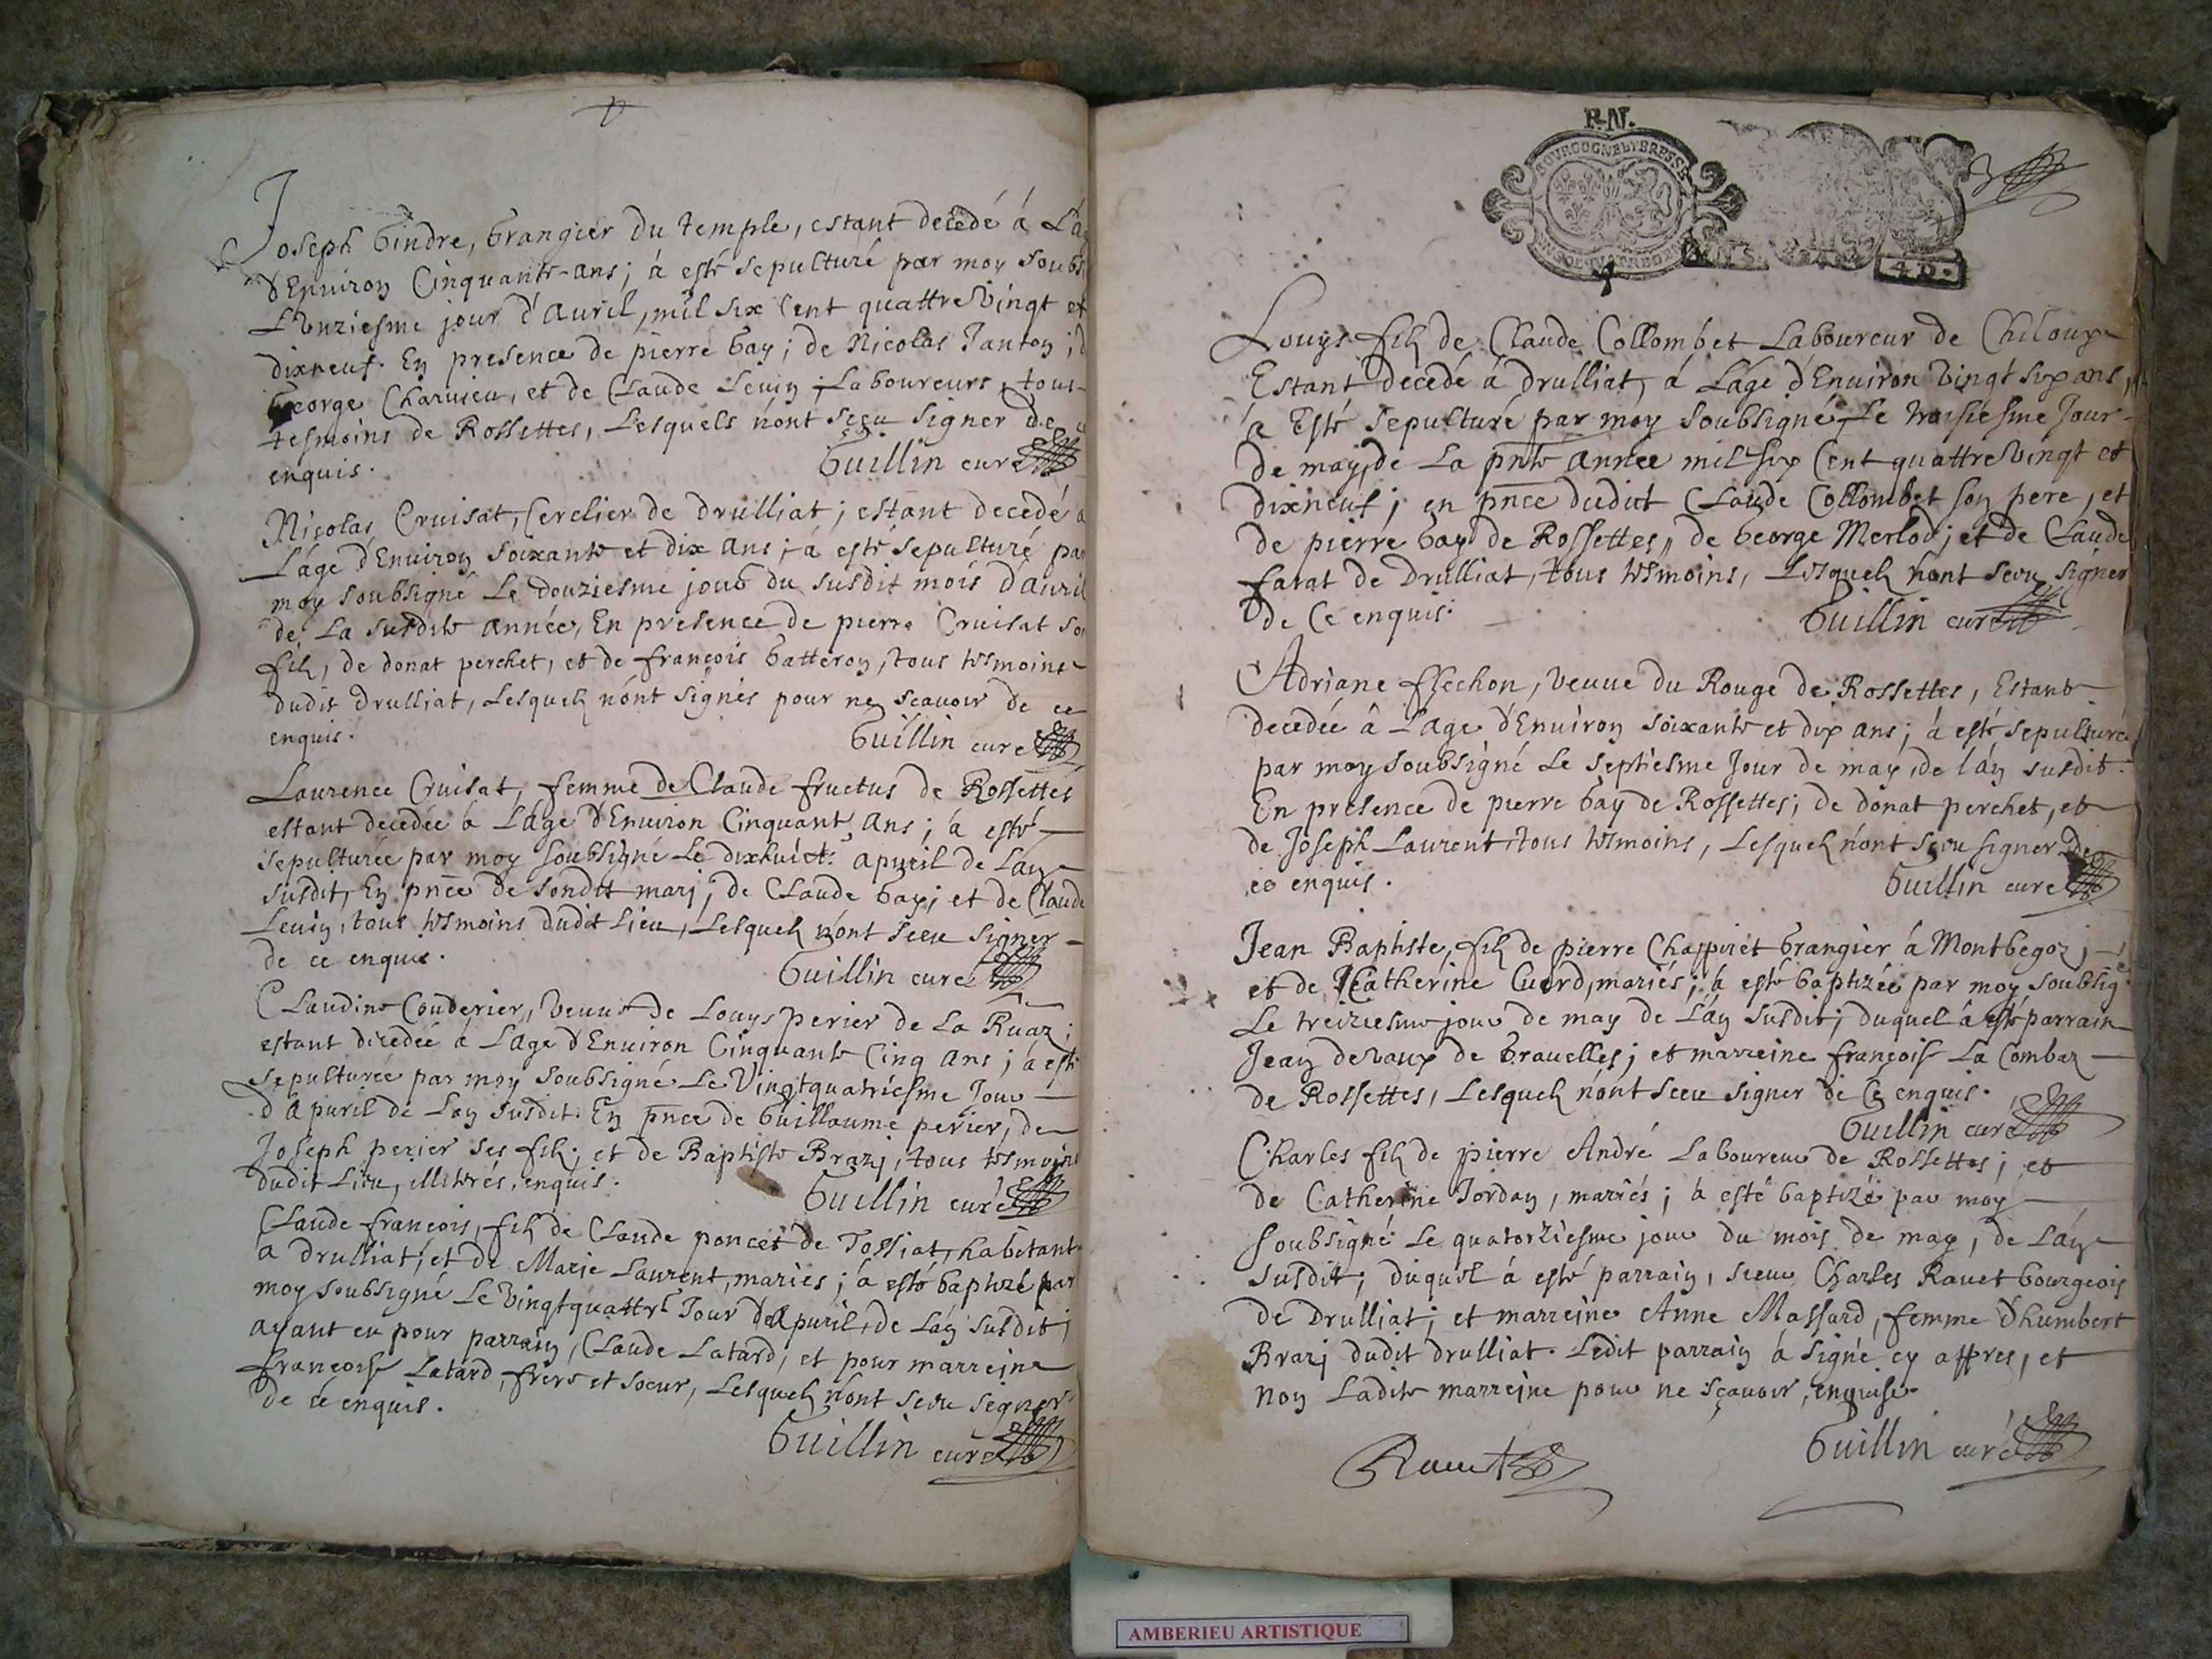 Joseph Gindre, Grangier du temple, estant decedé á L'á
d'Enuiron Cinquante-ans; á esté sepulturé par moy soubs
L'onziesme jour d'Auril, mil six Cent quattre Vingt et
dixneuf. En presence de pierre Gay; de Nicolas Janton;
George Charuieu, et de Claude Leuin; Laboureurs, tous
tesmoins de Rossettes, Lesquels n'ont sçeu signer de
enquis.
Guillin curé
Nicolas Cruisat, Cerclier de drulliat; estant decedé
L'áge d'Enuiron soixante et dix ans; á esté sepulturé par
moy soubsigné Le douziesme jour du susdit mois d'Auril
de La susdite année, En presence de pierre Cruisat so
filz, de donat perchet, et de françois Gatteron, tous tesmoins
dudit drulliat, Lesquelz n'ont signés pour ne sçauoir de ce
enquis.
Guillin curé
Laurence Cruisat, femme de Claude fructus de Rossettes
estant decedée á L'áge d'Enuiron Cinquant'ans; á esté
sepulturée par moy soubsigné Le dixhuict.e apuril de L'an
susdit, En pnce de sondit mari; de Claude Gay; et de Claude
Leuin, tous tesmoins dudit Lieu, Lesquelz n'ont sceu signer
de ce enquis.
Guillin curé
Claudine Couderier, Veuue de Louys perier de La Ruaz;
estant decedée á L'áge d'Enuiron Cinquante Cinq Ans; á esté
sepulturée par moy soubsigné Le Vingtquatriesme Jour
d'Apuril de L'an susdit. En pnce de Guillaume perier, de
Joseph perier ses filz; et de Baptiste Brazj, tous tesmoins
dudit Lieu, illitérés, enquis.
Guillin curé
Claude françois, filz de Claude poncet de Tossiat, habitant
a drulliat; et de Marie Laurent, mariés; á esté baptizé par
moy soubsigné Le Vingtquattre Jour d'Apuril, de L'an susdit;
ayant eu pour parrain, Claude Latard, et pour marreine
françoise Latard, frere et soeur, Lesquelz n'ont sceu signer
de ce enquis.
Guillin curé
P.N.
BOURGOGNE ET BRESSE
4 D.
Louys filz de Claude Collombet Laboureur de Chiloup
Estant decedé á drulliat, á L'áge d'Enuiron Vingt six ans,
á Esté sepulturé par moy soubsigné Le troisiesme Jour
de may, de La pnte année mil six Cent quattre Vingt et
dixneuf; en pnce dudict Claude Collombet son pere, et
de pierre Gay de Rossettes, de George Merlod; et de Claude
farat de Drulliat, tous tesmoins, Lesquelz n'ont sceu signer
de Ce enquis.
Guillin curé
Adriane flechon, Veuue du Rouge de Rossettes, Estant
decedée á L'age d'Enuiron soixante et dix ans; á esté sepulturée
par moy soubsigné Le septiesme Jour de may, de l'an susdit.
En presence de pierre Gay de Rossettes; de donat perchet, et
de Joseph Laurent, tous tesmoins, Lesquelz n'ont sceu signer de
ce enquis.
Guillin curé
Jean Baptiste, filz de pierre Chappuet Grangier á Montbegoz;
et de Catherine Cuerd, mariés; á esté baptizée par moy soubsig.é
Le treiziesme jour de may de L'án susdit; duquel á esté parrain
Jean deVaux de Grauelles; et marreine françoise La Combaz
de Rossettes, Lesquelz n'ont sceu signer de Ce enquis.
Guillin curé
Charles filz de pierre André Laboureur de Rossettes; et
de Catherine Jordan, mariés; á esté baptizé par moy
soubsigné Le quatorziesme jour du mois de may, de L'án
susdit; duquel á esté parrain, sieur Charles Rauet bourgeois
de Drulliat; et marreine Anne Massard, femme d'humbert
Brazj dudit drulliat. Ledit parrain á signé cy appres, et
non Ladite marreine pour ne sçauoir, enquise.
Guillin curé
Rauet
AMBERIEU ARTISTIQUE